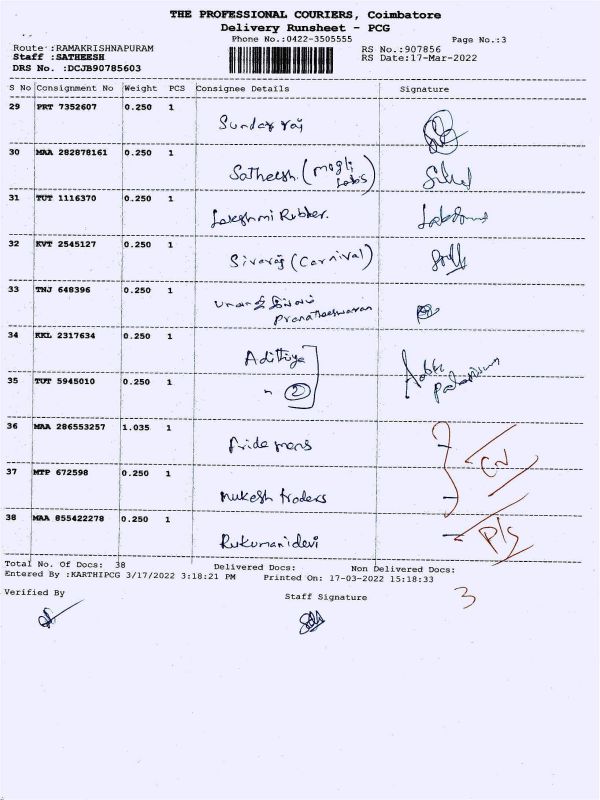 THE PROFESSIONAL COURIERS, Coimbatore
Delivery Runsheet - PCG
Phone No.:0422-3505555
Page No.:3
Route :RAMAKRISHNAPURAM
RS No.:907856
Staff :SATHEESH
RS Date:17-Mar-2022
DRS No. :DCJB90785603
S No Consignment No Weight PCS Consignee Details Signature
29 PRT 7352607 0.250 1
Sundar raj
30 MAA 282878161 0.250 1
Satheesh (mogli Labs)
31 TUT 1116370 0.250 1
Lakshmi Rubber.
32 KVT 2545127 0.250 1
Sivaraj (Carnival)
33 TNJ 648396 0.250 1
34 KKL 2317634 0.250 1
Adithya
35 TUT 5945010 0.250 1
" 2
36 MAA 286553257 1.035 1
Pride mens
37 MTP 672598 0.250 1
mukesh traders
38 MAA 855422278 0.250 1
Rukumanidevi
P/S
Total No. Of Docs: 38 Delivered Docs: Non Delivered Docs:
Entered By :KARTHIPCG 3/17/2022 3:18:21 PM Printed On: 17-03-2022 15:18:33
Verified By
Staff Signature
3